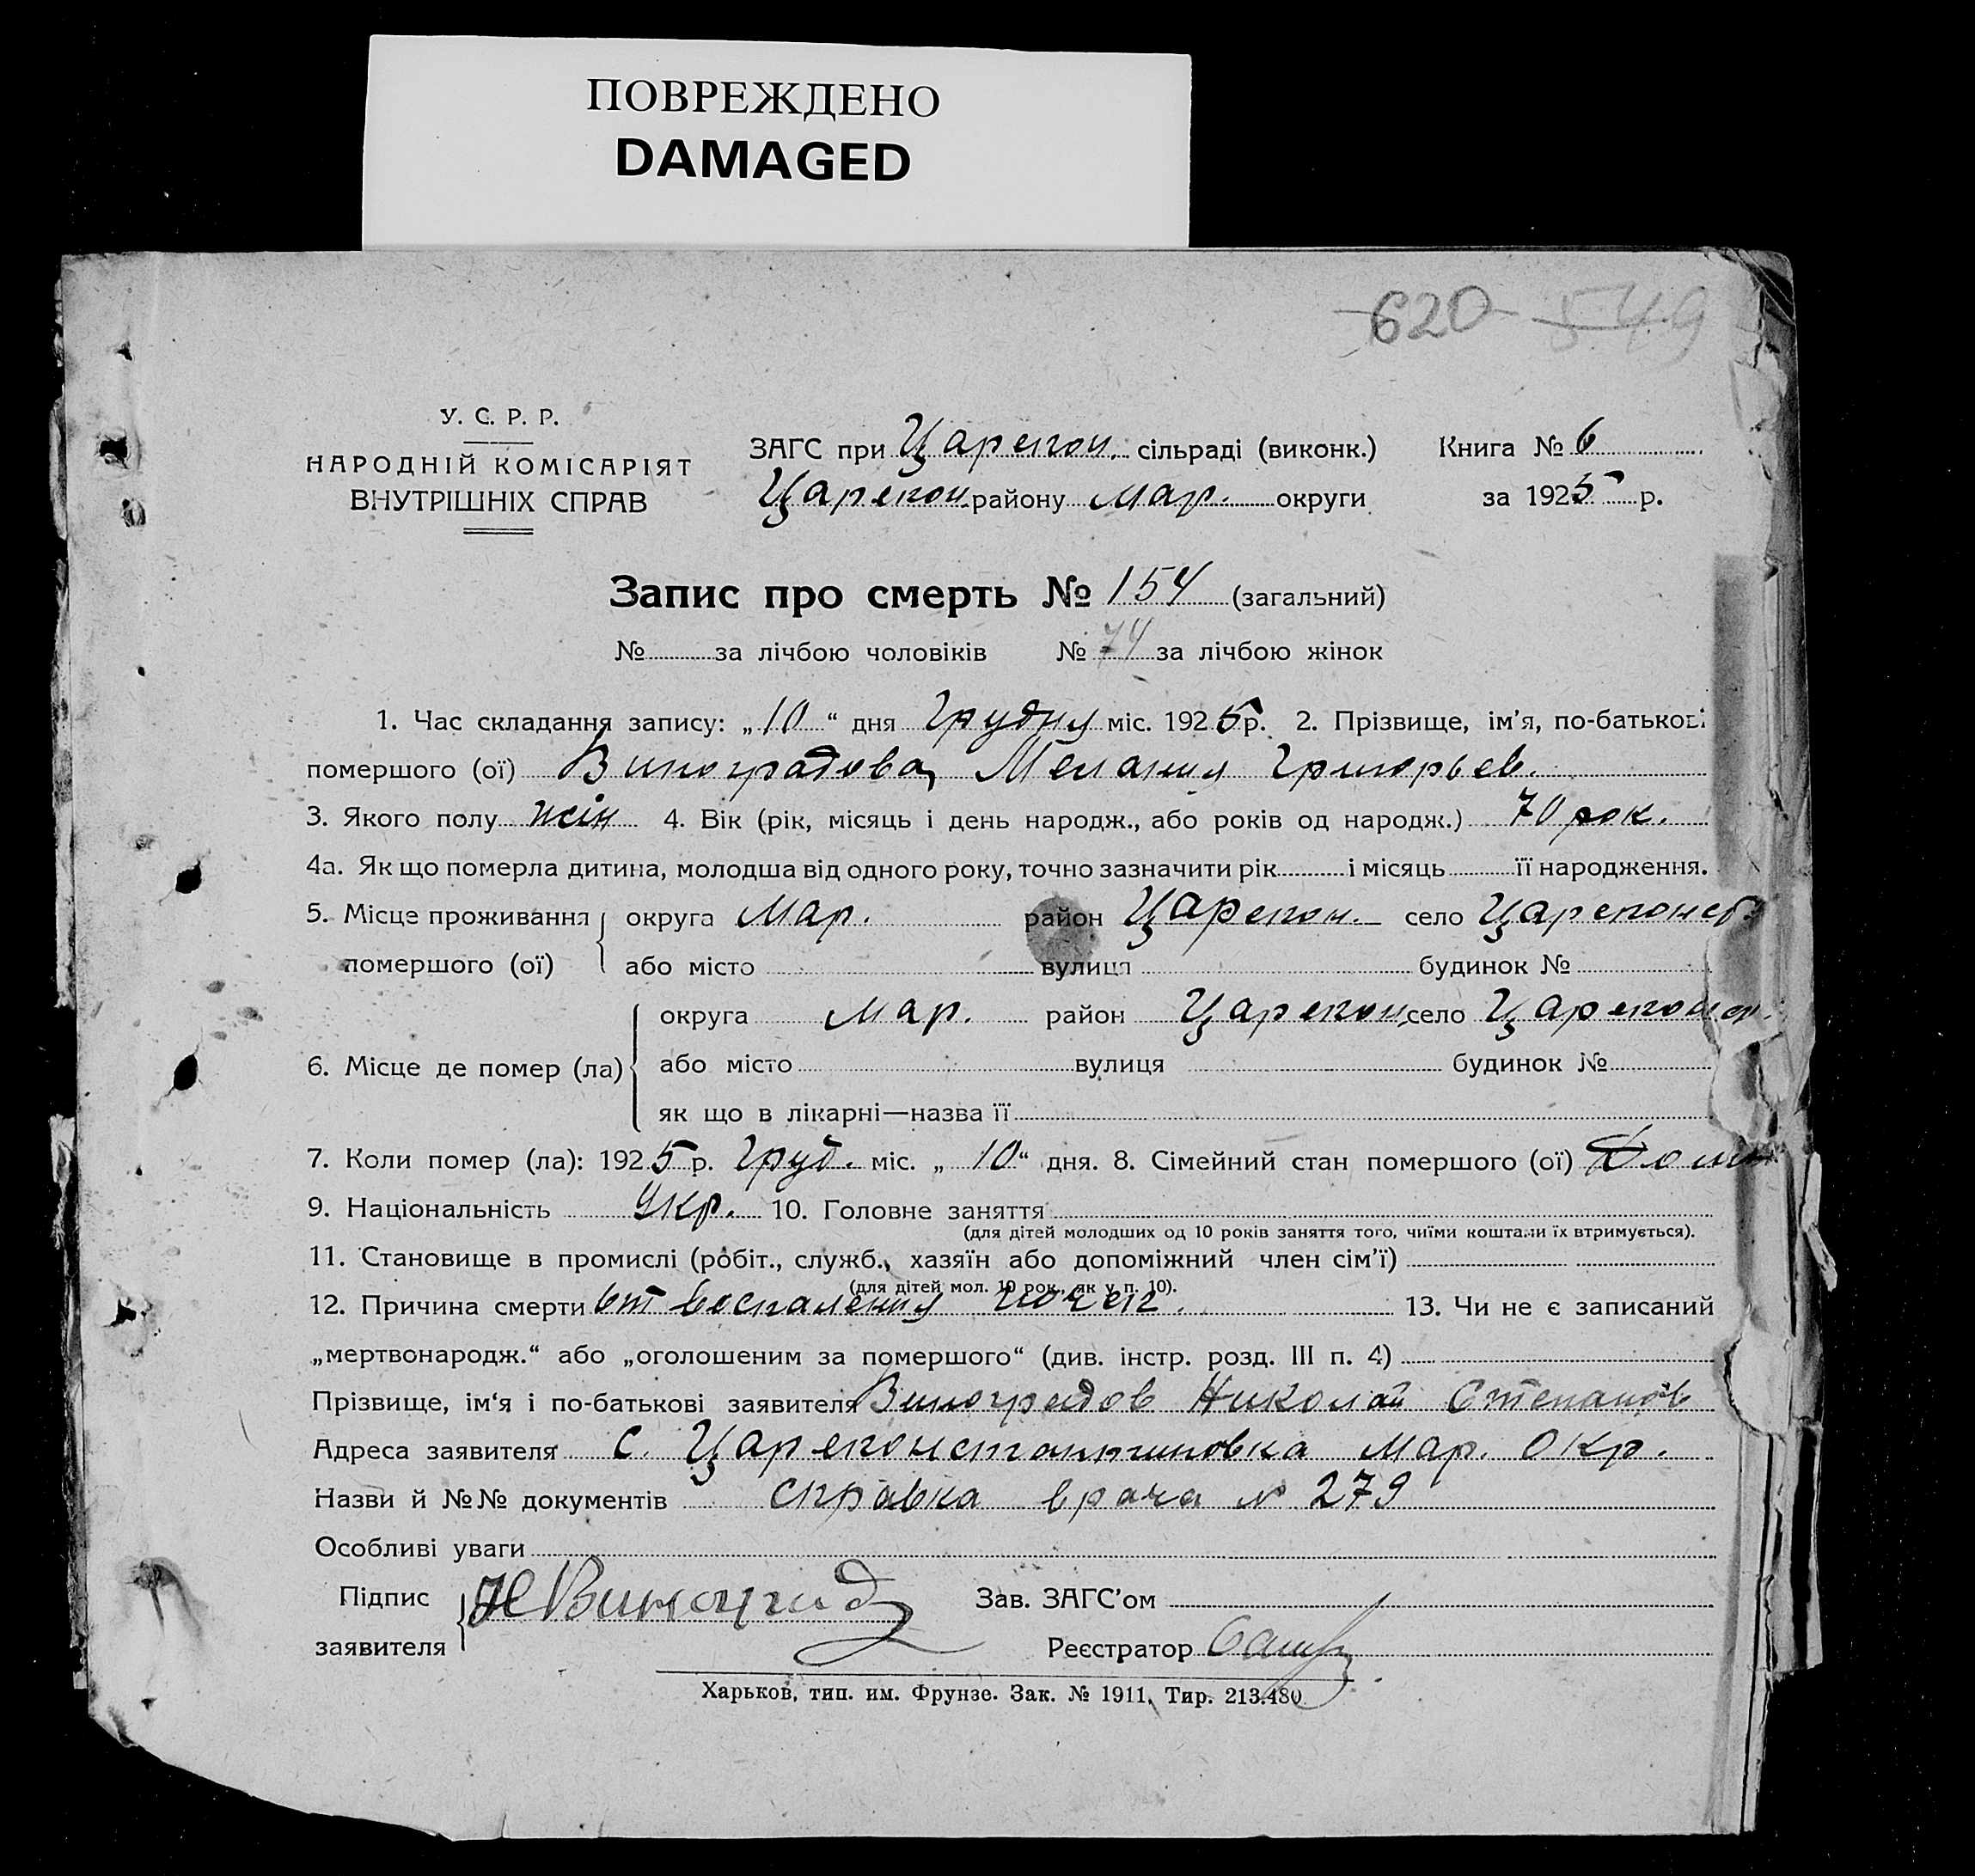 ПОВРЕЖДЕНО
DAMAGED
620 549
У. С. Р. Р.
НАРОДНІЙ КОМІСАРІЯТ
ВНУТРІШНІХ СПРАВ
ЗАГС при Царекон. сільраді (виконк.) Книга № 6
Царекон. району Мар. округи за 1925 р.
Запис про смерть № 154 (загальний)
№ за лічбою чоловіків № 74 за лічбою жінок
1. Час складання запису: „10“ дня Грудня міс. 1925 р. 2. Прізвище, ім’я, по-батькові
помершого (ої) Виноградова Мелания Григорьев.
3. Якого полу жін 4. Вік (рік, місяць і день народж., або років од народж.) 70 рок.
4а. Як що померла дитина, молодша від одного року, точно зазначити рік і місяць її народження.
5. Місце проживання округа Мар. район Царекон. село Цареконст
помершого (ої) або місто вулиця будинок №
округа Мар. район Царекон. село
6. Місце де помер (ла) або місто вулиця будинок №
як що в лікарні—назва її
7. Коли помер (ла): 1925 р. Груд. міс. „10“ дня. 8. Сімейний стан помершого (ої)
9. Національність Укр. 10. Головне заняття
(для дітей молодших од 10 років заняття того, чиїми коштами їх втримується).
11. Становище в промислі (робіт., служб., хазяїн або допоміжний член сім’ї)
(для дітей мол. 10 рок., як у п. 10).
12. Причина смерти от воспаления почек. 13. Чи не є записаний
„мертвонародж.“ або „оголошеним за помершого“ (див. інстр. розд. III п. 4)
Прізвище, ім‘я і по-батькові заявителя Виноградов Николай Степанов
Адреса заявителя с. Цареконстантиновка Мар. Окр.
Назви й №№ документів справка врача № 279
Особливі уваги
Підпис заявителя НВиноград Зав. ЗАГС’ом
Реєстратор
Харьков, тип. им. Фрунзе. Зак. № 1911. Тир. 213.480